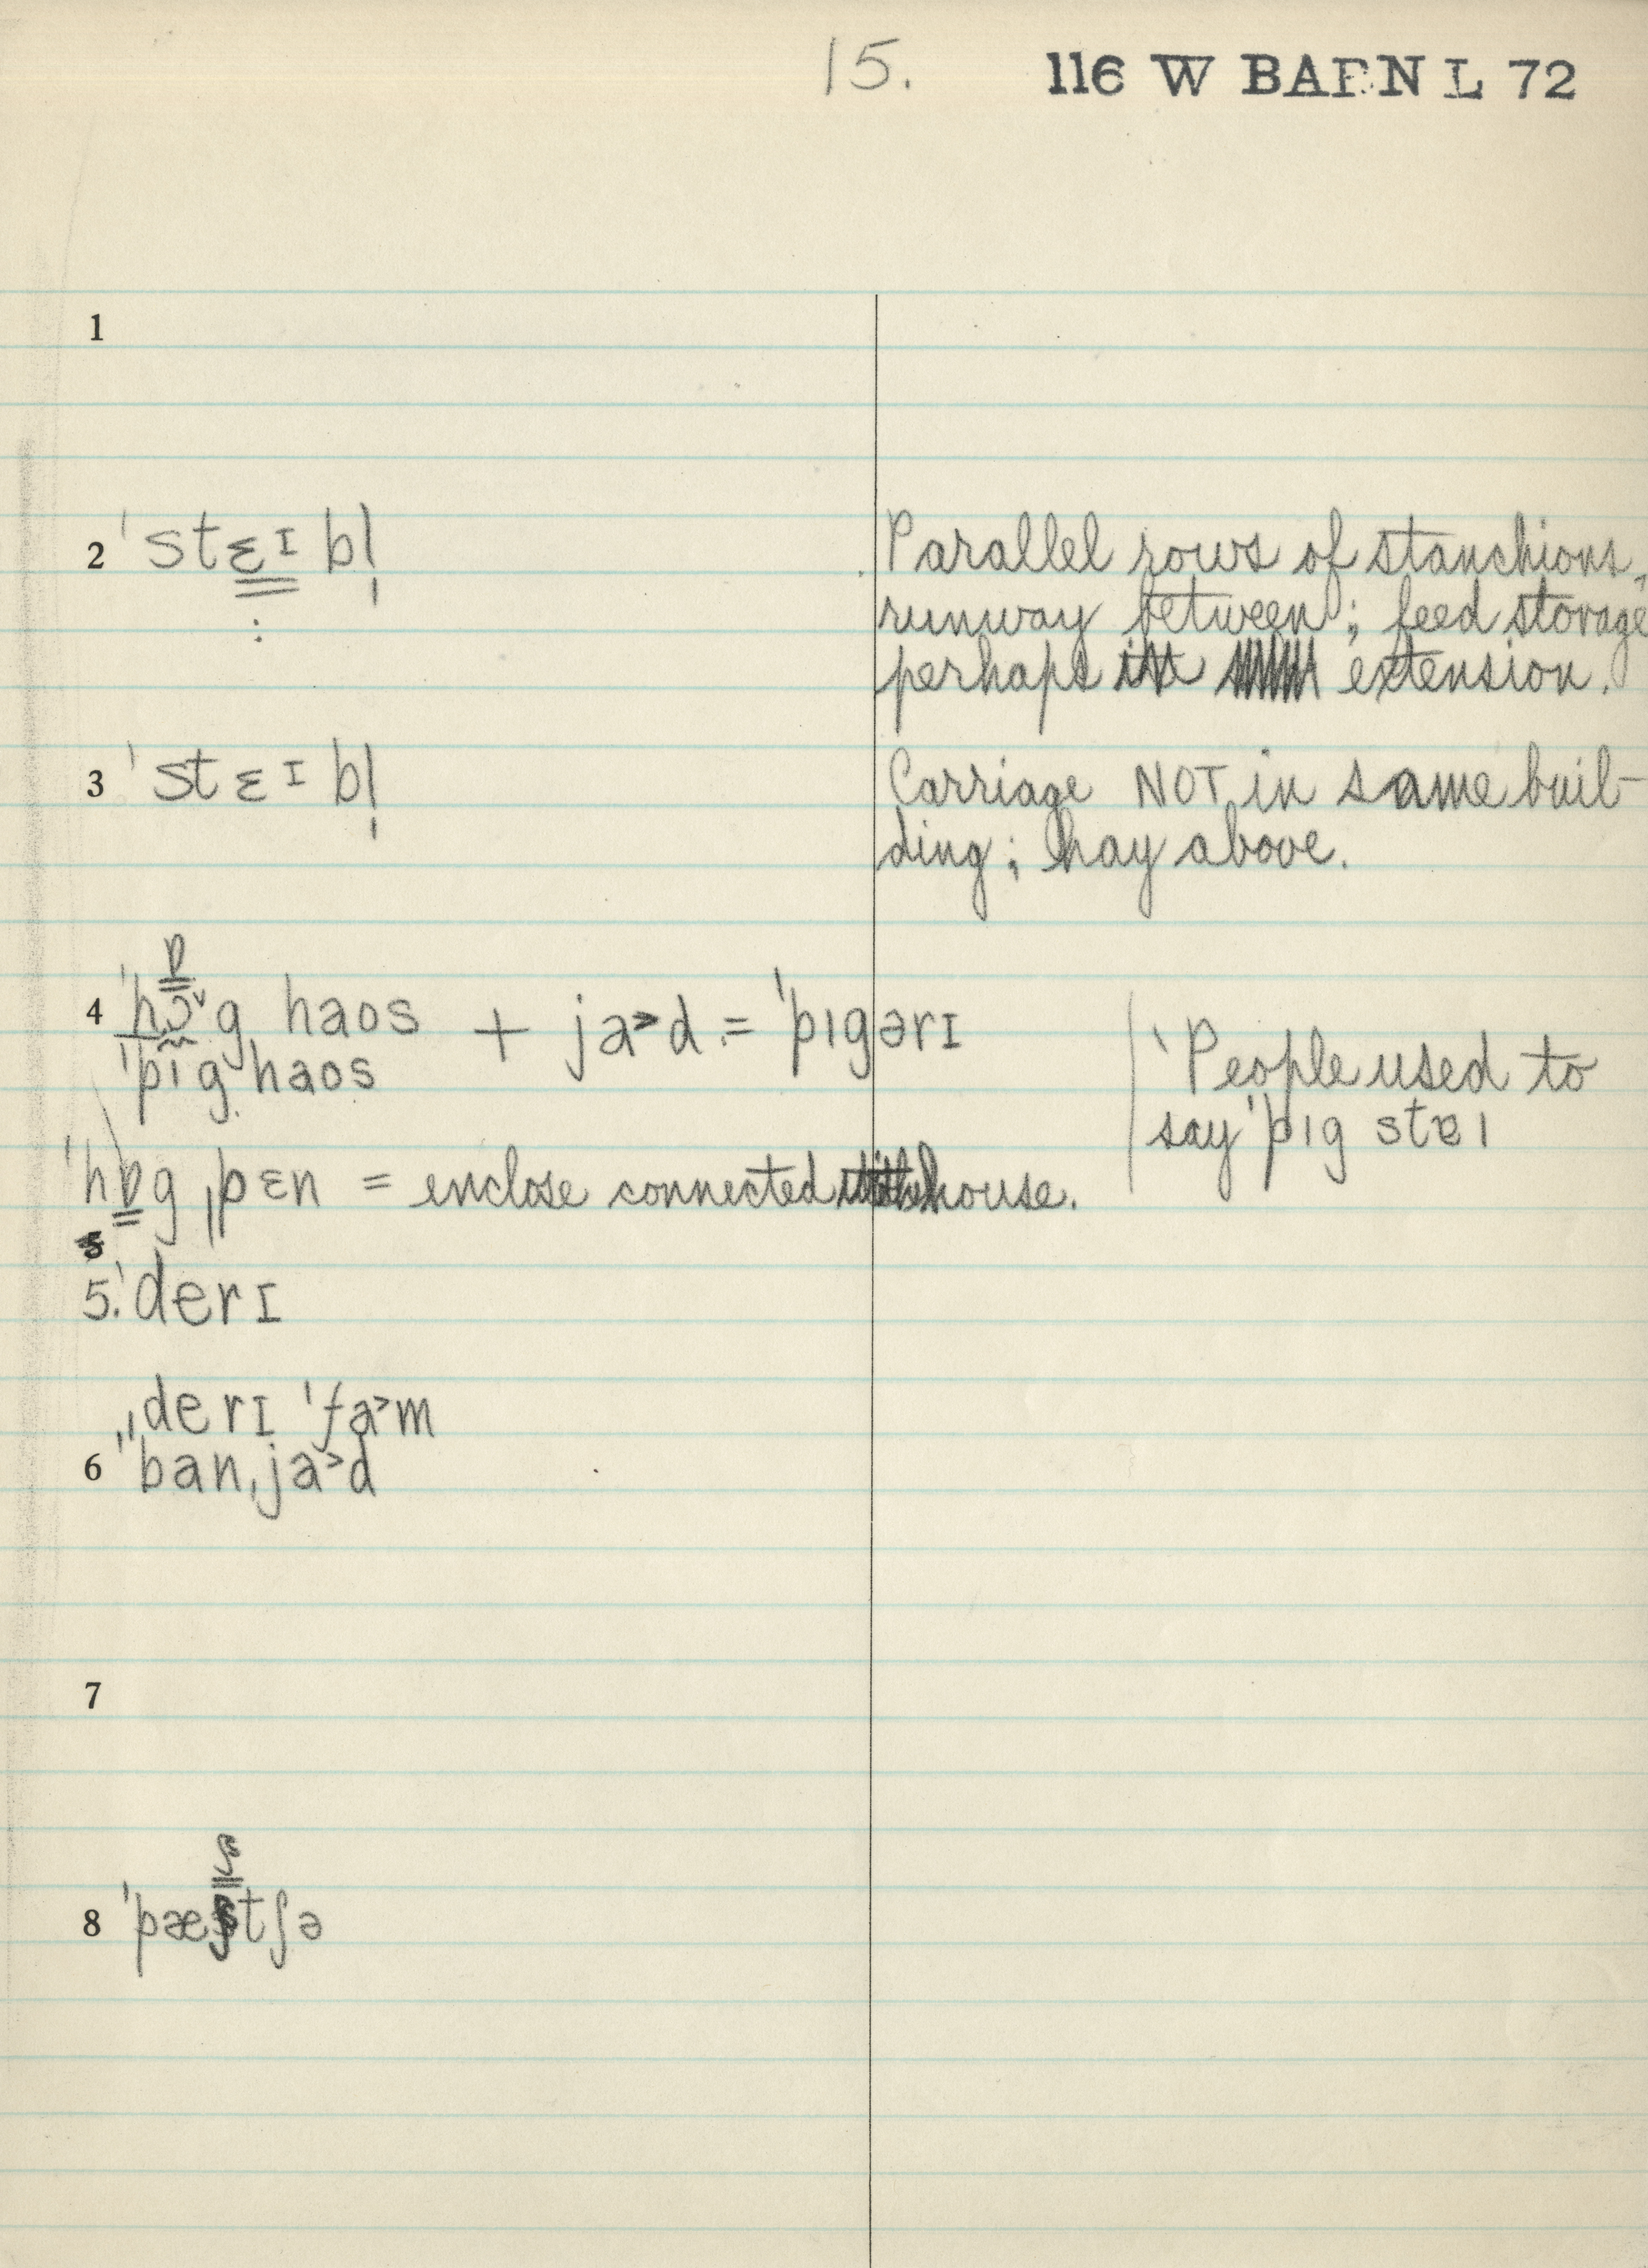 15. 116 W BARN L 72
1
2 ˈstɛɪbl̩ Parallel rows of stanchions,
runway between; feed storage
perhaps in extension.
3 ˈstɛɪbl̩ Carriage NOT in same buil-
ding; hay above.
ɒ
4 ˈhɔ˅g haos + ja>d = ˈpɪgərɪ
ˈpɪg haos 'People used to
say ˈpɪg staɪ
ˈhɒg ˌpɛn = enclose connected house.
5. ˈderɪ
ˌˌderɪ ˈfa>m
6 ˈban ˌja>d
7
8 ˈpæstʃə